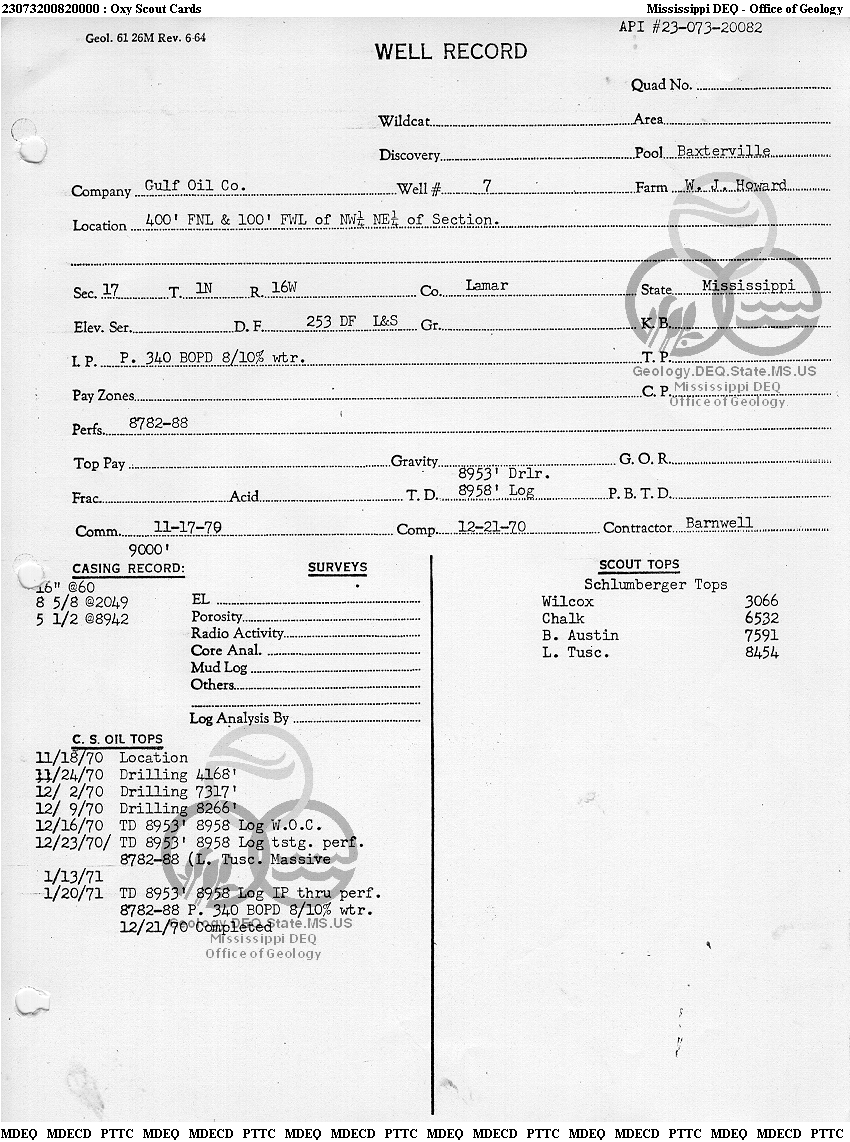 23073200820000 : Oxy Scout Cards Mississippi DEQ - Office of Geology
API #23-073-20082
Geol. 61 26M Rev. 6-64
WELL RECORD
Quad No.
Wildcat Area
Discovery Pool Baxterville
Company Gulf Oil Co. Well # 7 Farm W. J. Howard
Location 400' FNL & 100' FWL of NW¼ NE¼ of Section.
Sec. 17 T. 1N R. 16W Co. Lamar State Mississippi
Elev. Ser. D. F. 253 DF L&S Gr. K. B.
I. P. P. 340 BOPD 8/10% wtr. T. P.
Geology.DEQ.State.MS.US
Pay Zones C. P.
Mississippi DEQ
Office of Geology
Perfs. 8782-88
Top Pay Gravity G. O. R.
8953' Drlr.
Frac. Acid T. D. 8958' Log P. B. T. D.
Comm. 11-17-70 Comp. 12-21-70 Contractor Barnwell
9000'
CASING RECORD: SURVEYS SCOUT TOPS
16" @60 Schlumberger Tops
8 5/8 @2049 EL Wilcox 3066
5 1/2 @8942 Porosity Chalk 6532
Radio Activity B. Austin 7591
Core Anal. L. Tusc. 8454
Mud Log
Others
Log Analysis By
C. S. OIL TOPS
11/18/70 Location
11/24/70 Drilling 4168'
12/ 2/70 Drilling 7317'
12/ 9/70 Drilling 8266'
12/16/70 TD 8953' 8958 Log W.O.C.
12/23/70/ TD 8953' 8958 Log tstg. perf.
8782-88 (L. Tusc. Massive
1/13/71
1/20/71 TD 8953' 8958 Log IP thru perf.
8782-88 P. 340 BOPD 8/10% wtr.
Geology.DEQ.State.MS.US
12/21/70 Completed
Mississippi DEQ
Office of Geology
MDEQ MDECD PTTC MDEQ MDECD PTTC MDEQ MDECD PTTC MDEQ MDECD PTTC MDEQ MDECD PTTC MDEQ MDECD PTTC